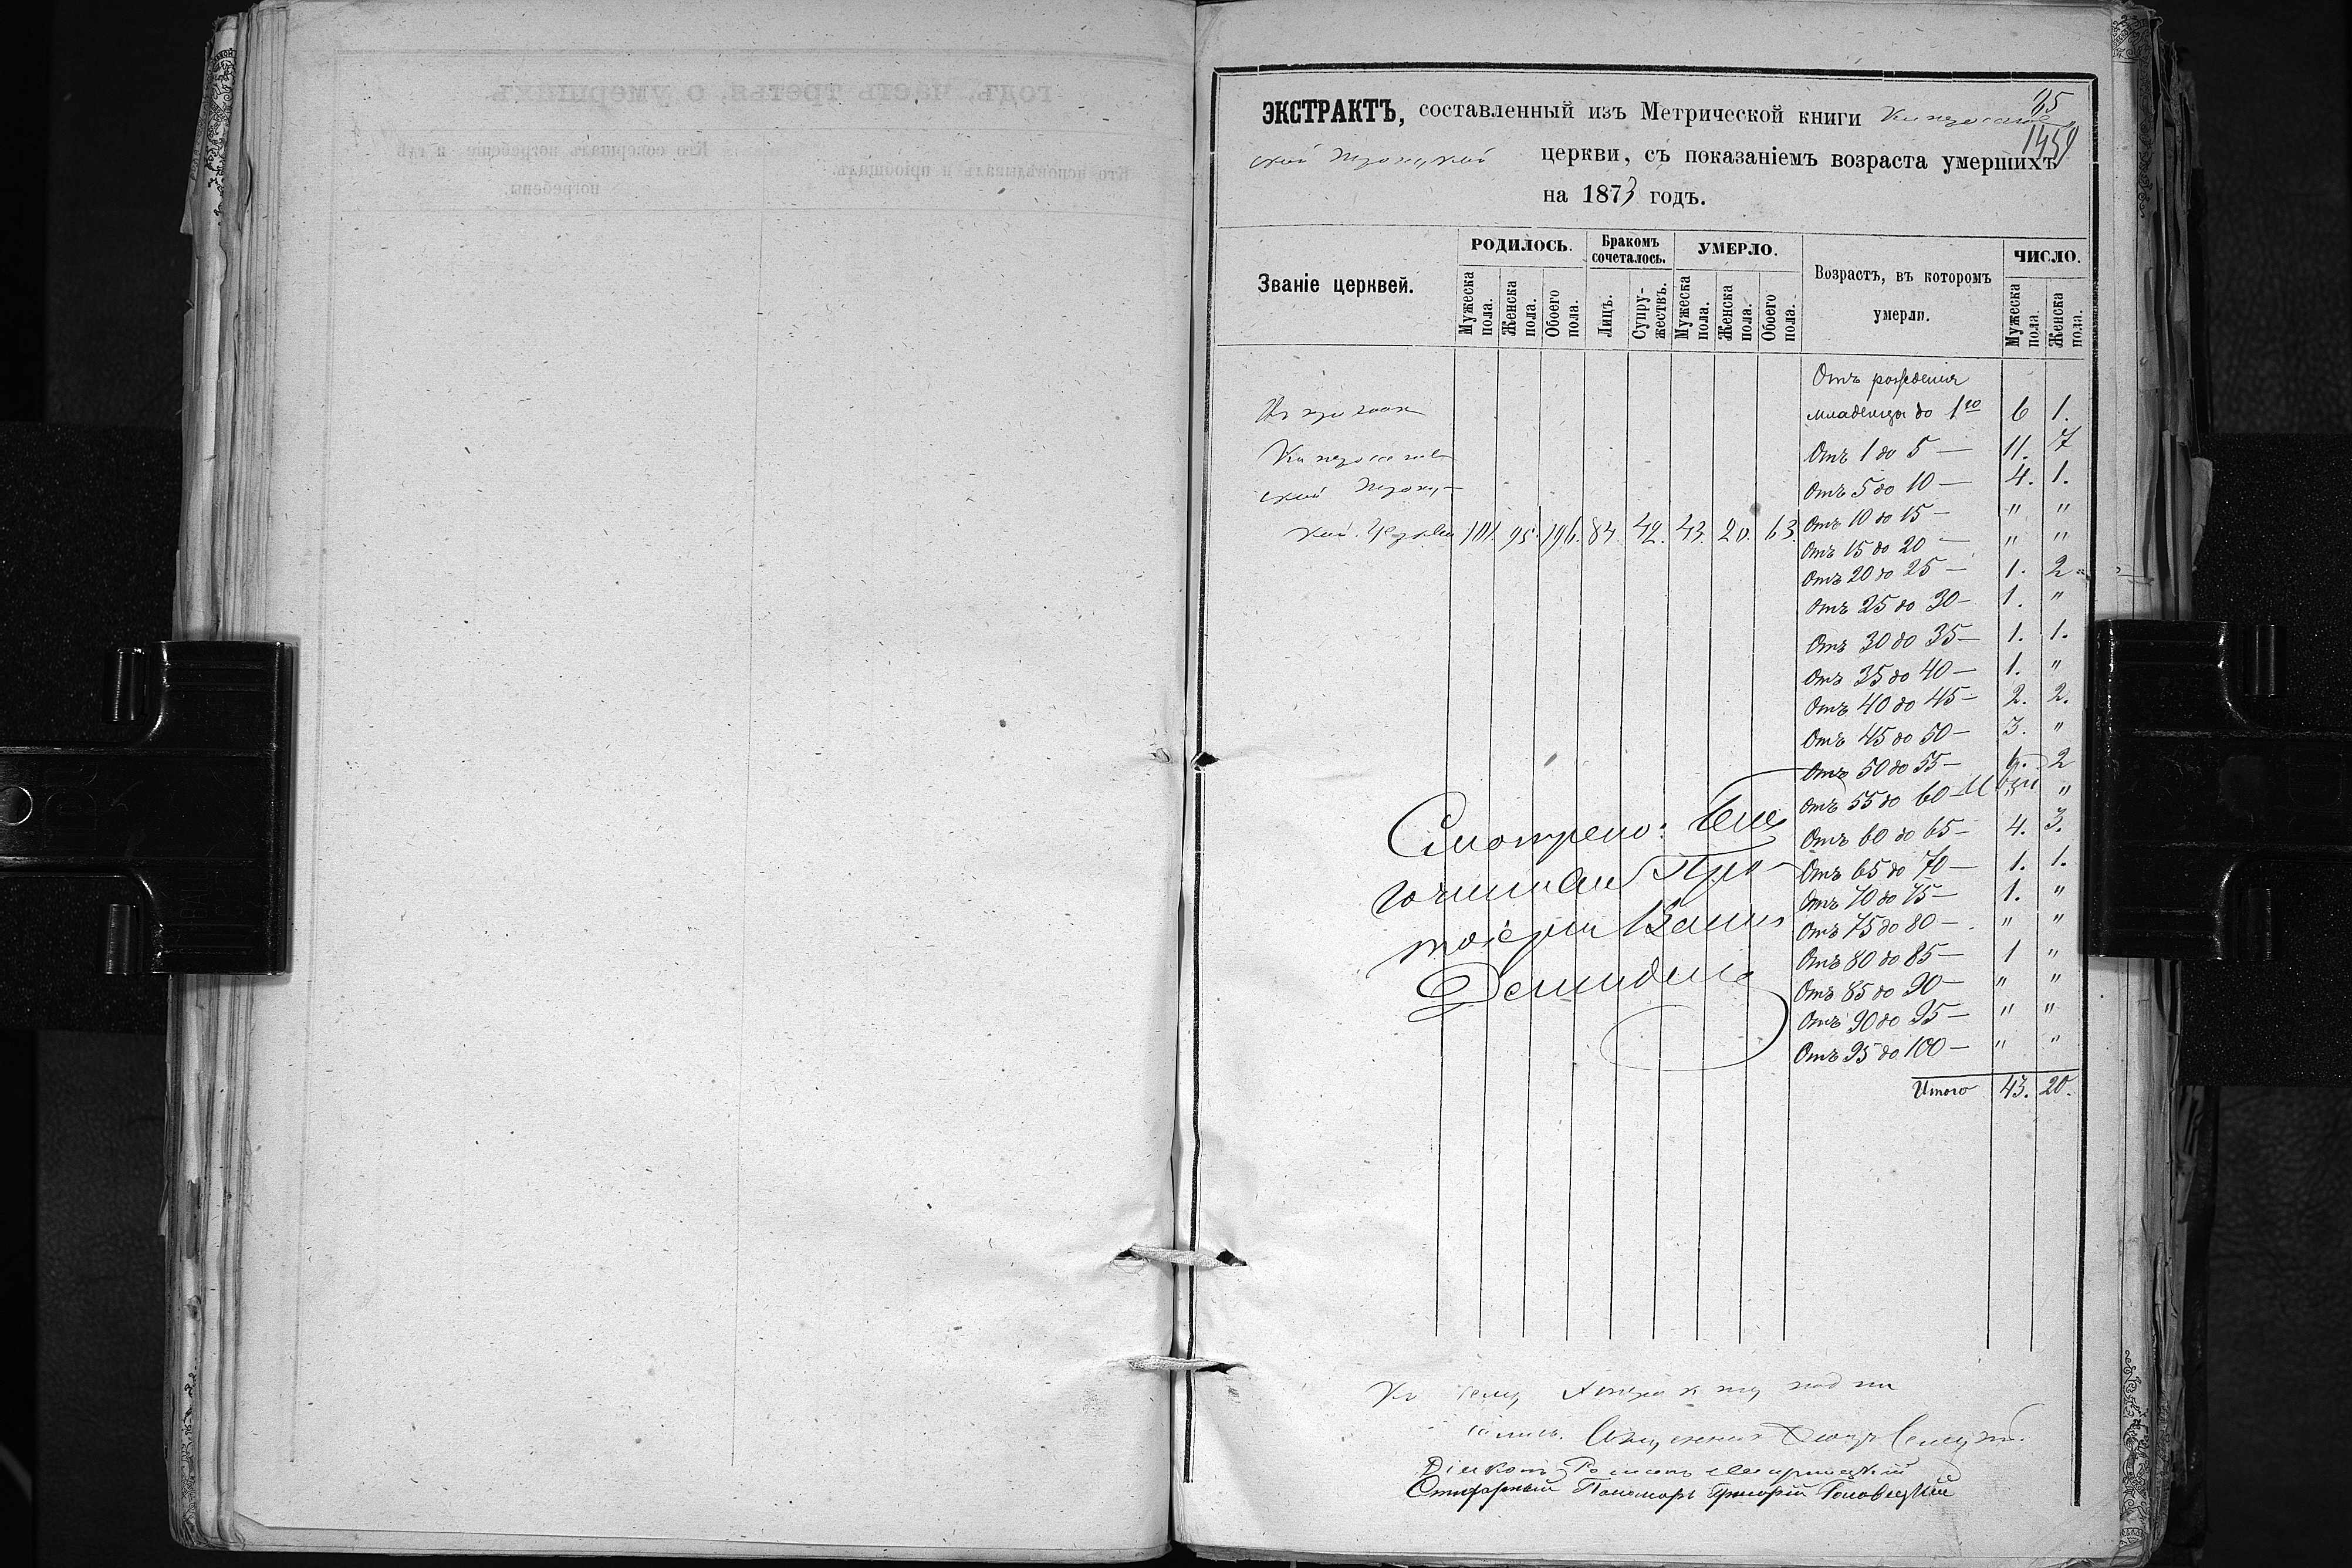 ЭКСТРАКТЪ, составленный изъ Метрической книги
65
1459
ской Троицкой церкви, съ показаніемъ возраста умершихъ
на 1873 годъ.
Званіе церквей.
РОДИЛОСЬ.
Мужеска пола.
Женска пола.
Обоего пола.
Бракомъ сочеталось.
Лицъ.
Супру-жествъ.
УМЕРЛО.
Мужеска пола.
Женска пола.
Обоего пола.
Возрастъ, въ которомъ
умерли.
ЧИСЛО.
Мужеска пола.
Женска пола.
Отъ рожденія
младенцы до 1го 6 1.
Отъ 1 до 5 — 11. 7
Отъ 5 до 10 — 4. 1.
ской Троиц-
кой Церкви 101. 95. 196. 84. 42. 43. 20. 63.
Отъ 10 до 15 — " "
Отъ 15 до 20 — " "
Отъ 20 до 25 — 1. 2
Отъ 25 до 30 — 1. "
Отъ 30 до 35 — 1. 1.
Отъ 35 до 40 — 1. "
Отъ 40 до 45 — 2. 2.
Отъ 45 до 50 — 3. "
Отъ 50 до 55 — 6. 2
Отъ 55 до 60 — " "
Отъ 60 до 65 — 4. 3.
Отъ 65 до 70 — 1. 1.
Отъ 70 до 75 — 1. "
Отъ 75 до 80 — " "
Отъ 80 до 85 — 1 "
Отъ 85 до 90 — " "
Отъ 90 до 95 — " "
Отъ 95 до 100 — " "
Итого 43. 20.
Смотрено: Бла
гочинный Про-
тоіерей
Къ сему Экстракту подпи
сались. Священникъ
Діаконъ Романъ
Пономарь Григорій
годъ, часть третья, о умершихъ.
Кто исповѣдывалъ и пріобщалъ.
Кто совершалъ погребеніе и гдѣ
погребены.